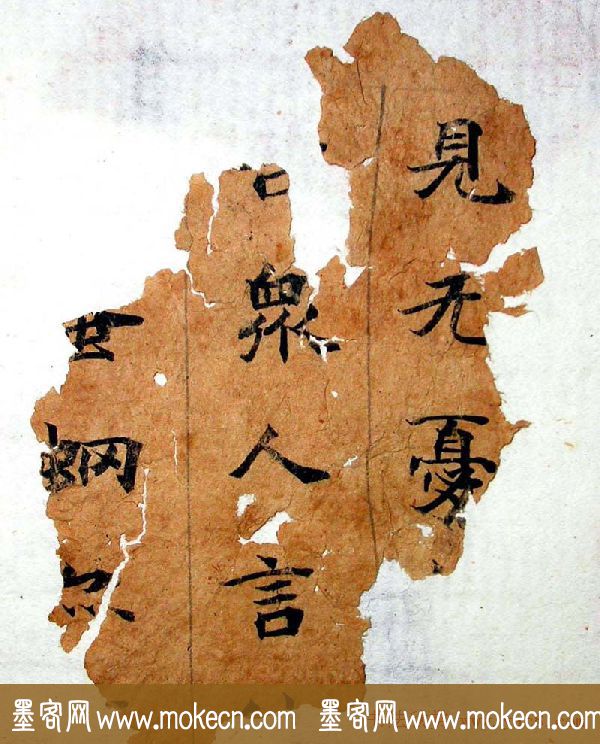 見无憂
衆人言
世網尒
墨客网 www.mokecn.com 墨客网 www.mokecn.com